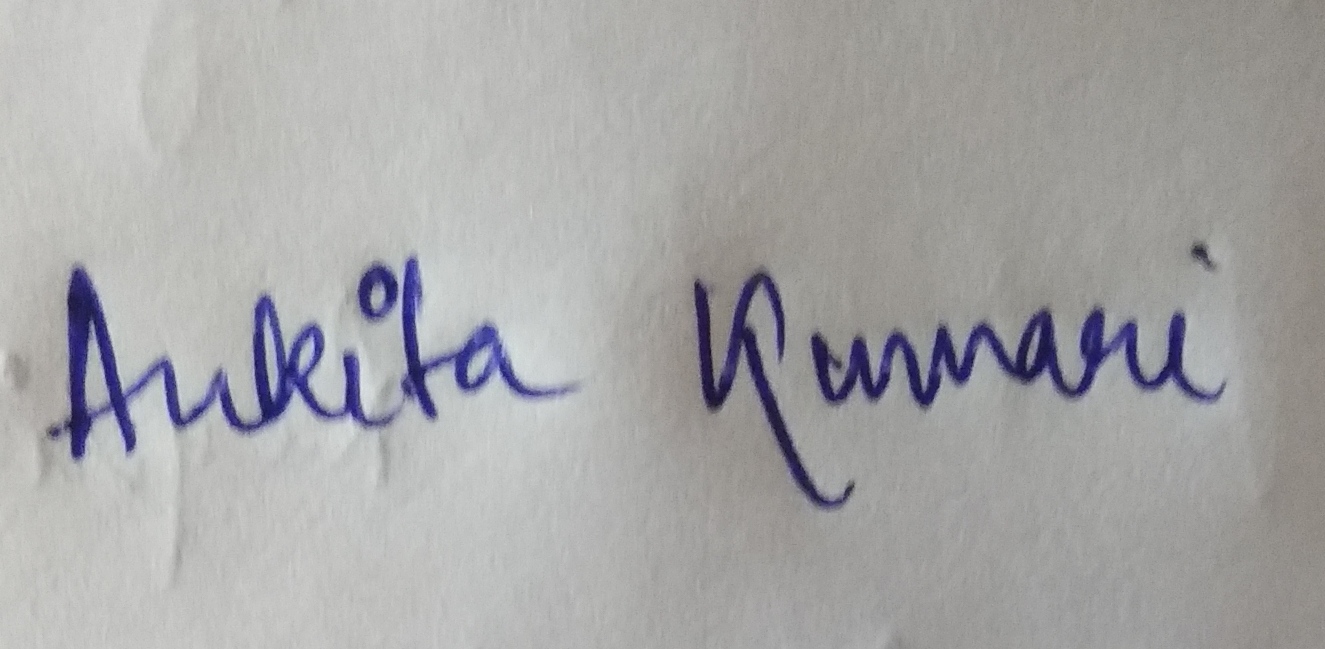 Ankita Kumari